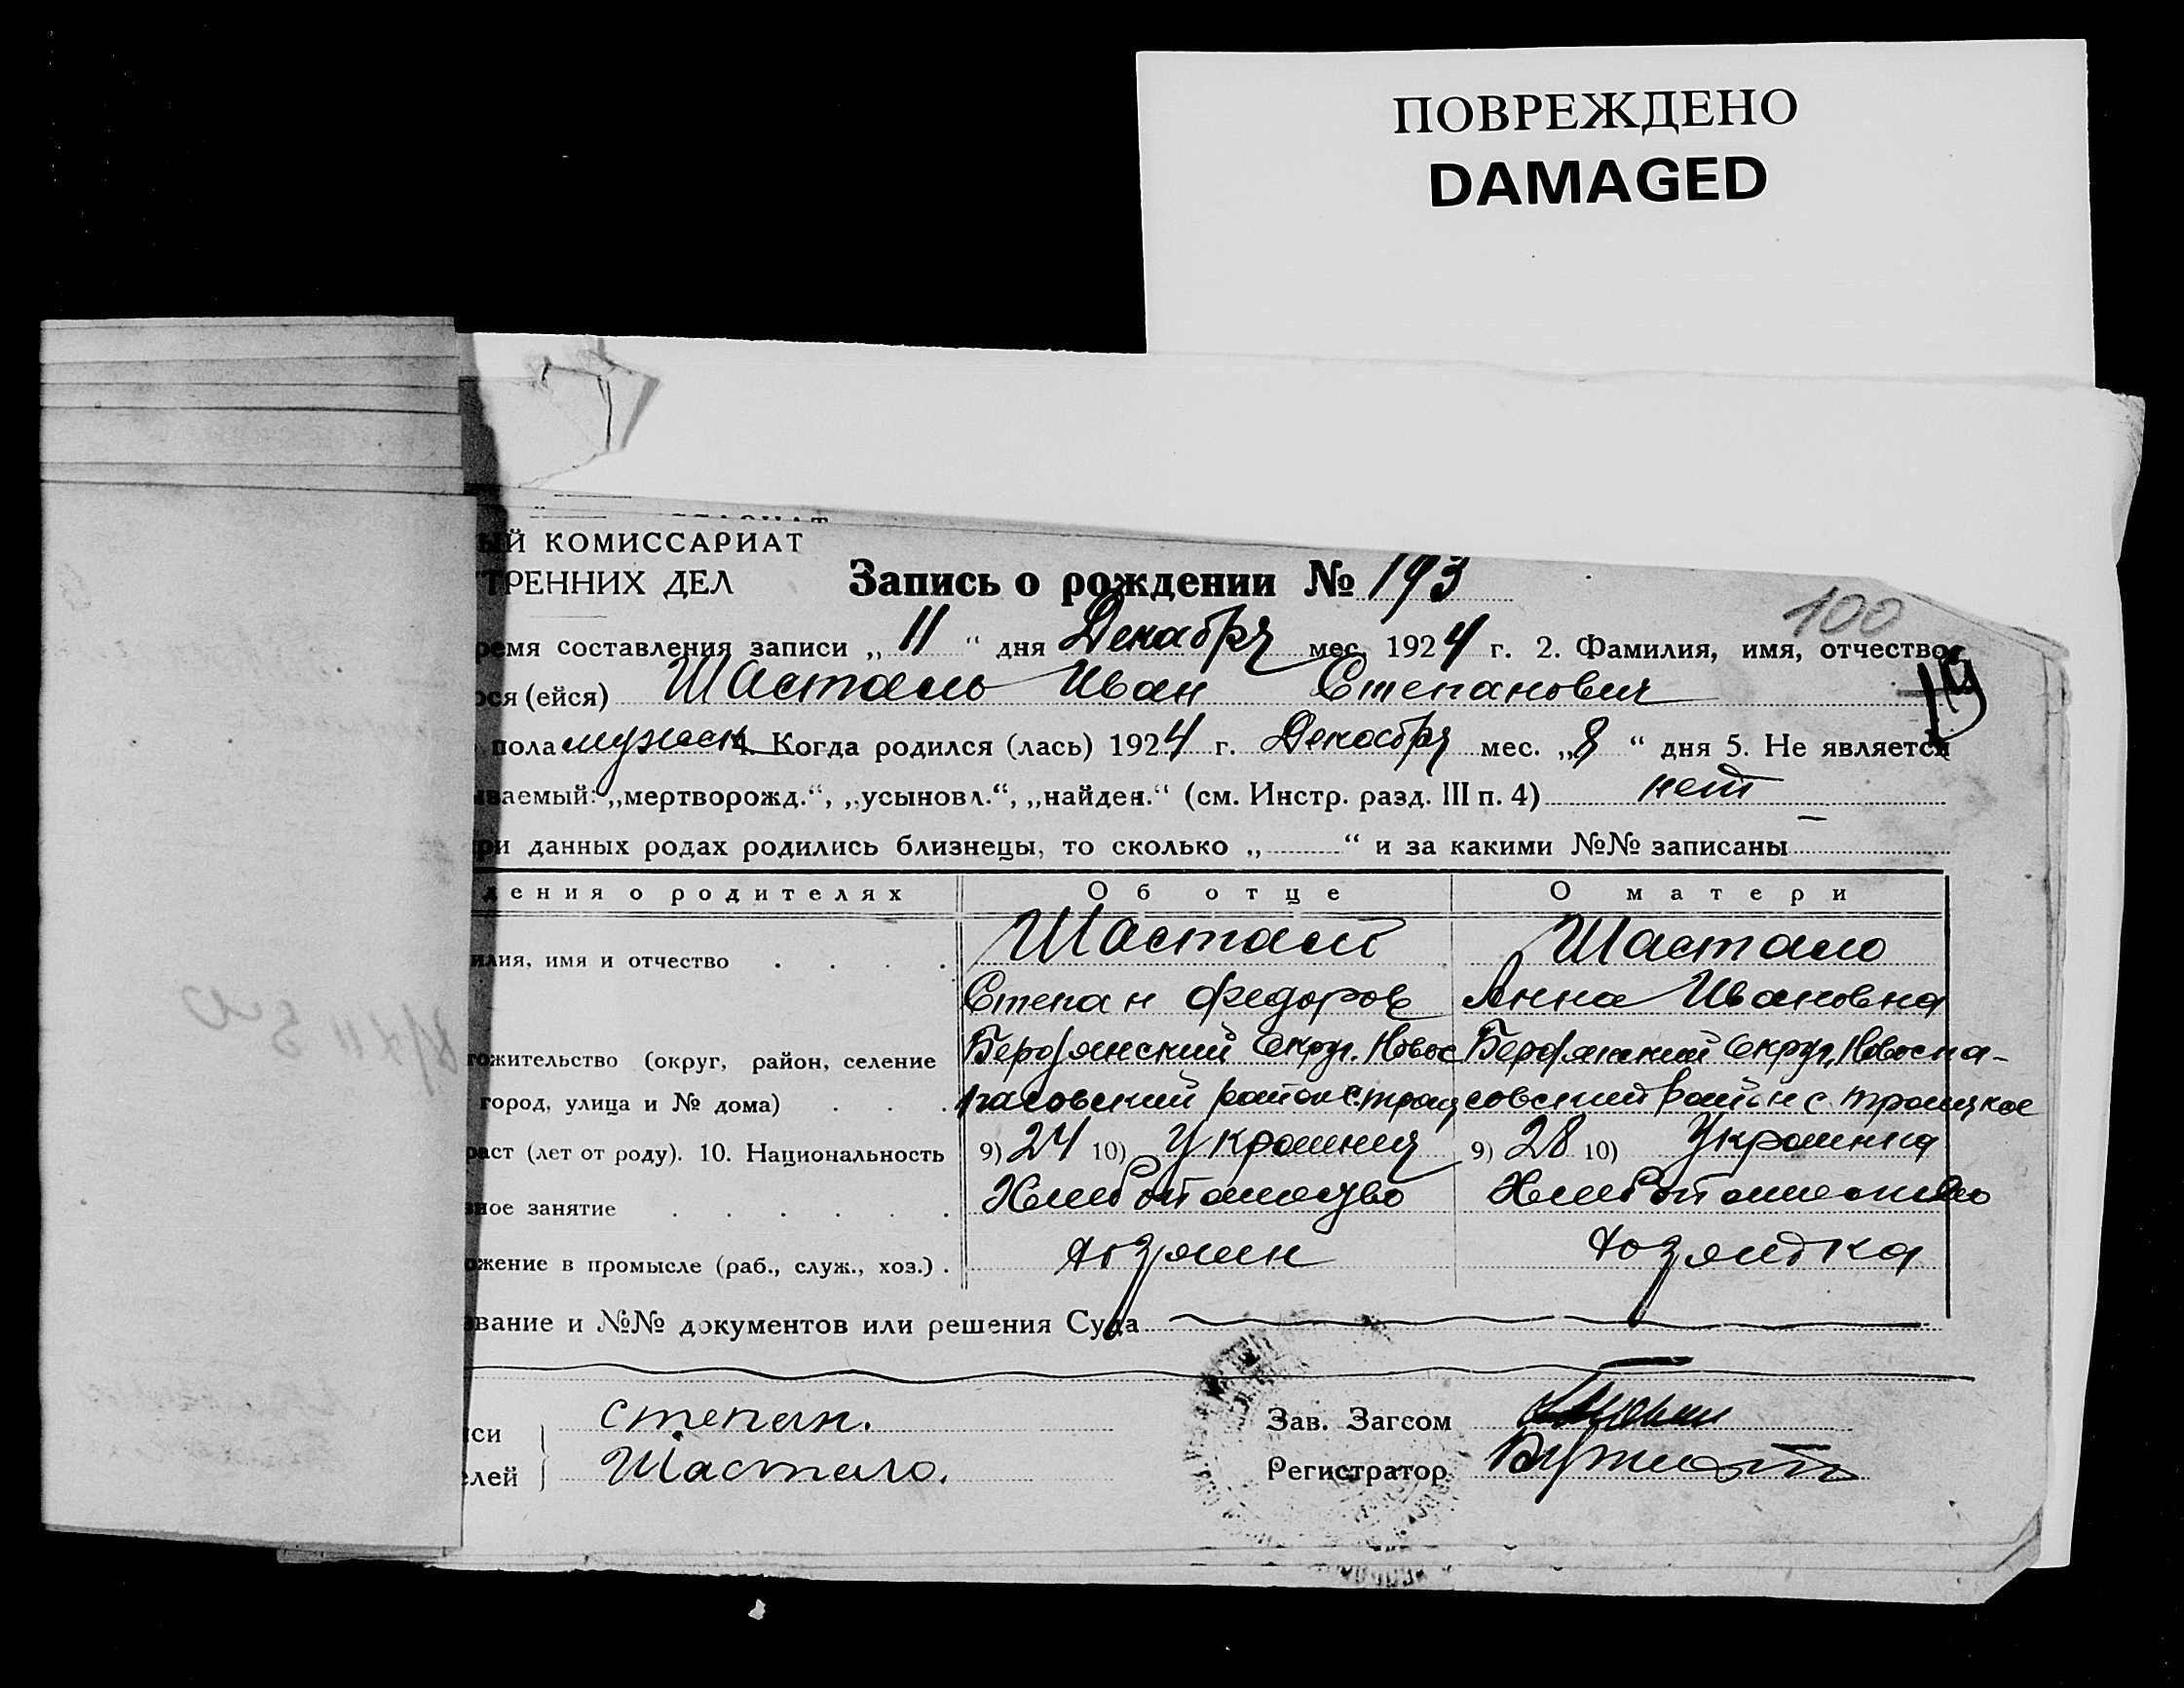 ПОВРЕЖДЕНО
DAMAGED
ый КОМИССАРИАТ
ТРЕННИХ ДЕЛ
Запись о рождении № 193
100
ремя составления записи „ 11 “ дня Декабря мес. 1924 г. 2. Фамилия, имя, отчество
ося (ейся) Шасталь Иван Степанович
19
пола мужск 4. Когда родился (лась) 1924 г. Декабря мес. „ 8 “ дня 5. Не является
ваемый: „мертворожд.“, „усыновл.“, „найден.“ (см. Инстр. разд. III п. 4) нет
ри данных родах родились близнецы, то сколько „ “ и за какими №№ записаны
дения о родителях Об отце О матери
илия, имя и отчество Шасталь Шастало
Степан Федоров Анна Ивановна
ожительство (округ, район, селение Бердянский Округ. Новос Бердянский Округ, Новоспа-
город, улица и № дома) пасовский район с. троиц совский Район с троицкое
раст (лет от роду). 10. Национальность 9) 24 10) Украинец 9) 28 10) Украинка
ное занятие Хлебопашество Хлебопашество
ожение в промысле (раб., служ., хоз.) хозяин хозяйка
вание и №№ документов или решения Суда
си степан. Зав. Загсом
елей Шастало. Регистратор